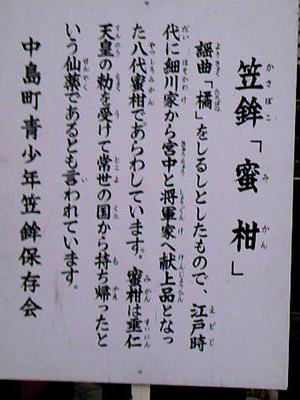 笠鉾「蜜柑」
謡曲「橘」をしるしとしたもので、江戸時
代に細川家から宮中と将軍家へ献上品となっ
た八代蜜柑であらわしています。蜜柑は垂仁
天皇の勅を受けて常世の国から持ち帰ったと
いう仙薬であるとも言われています。
中島町青少年笠鉾保存会